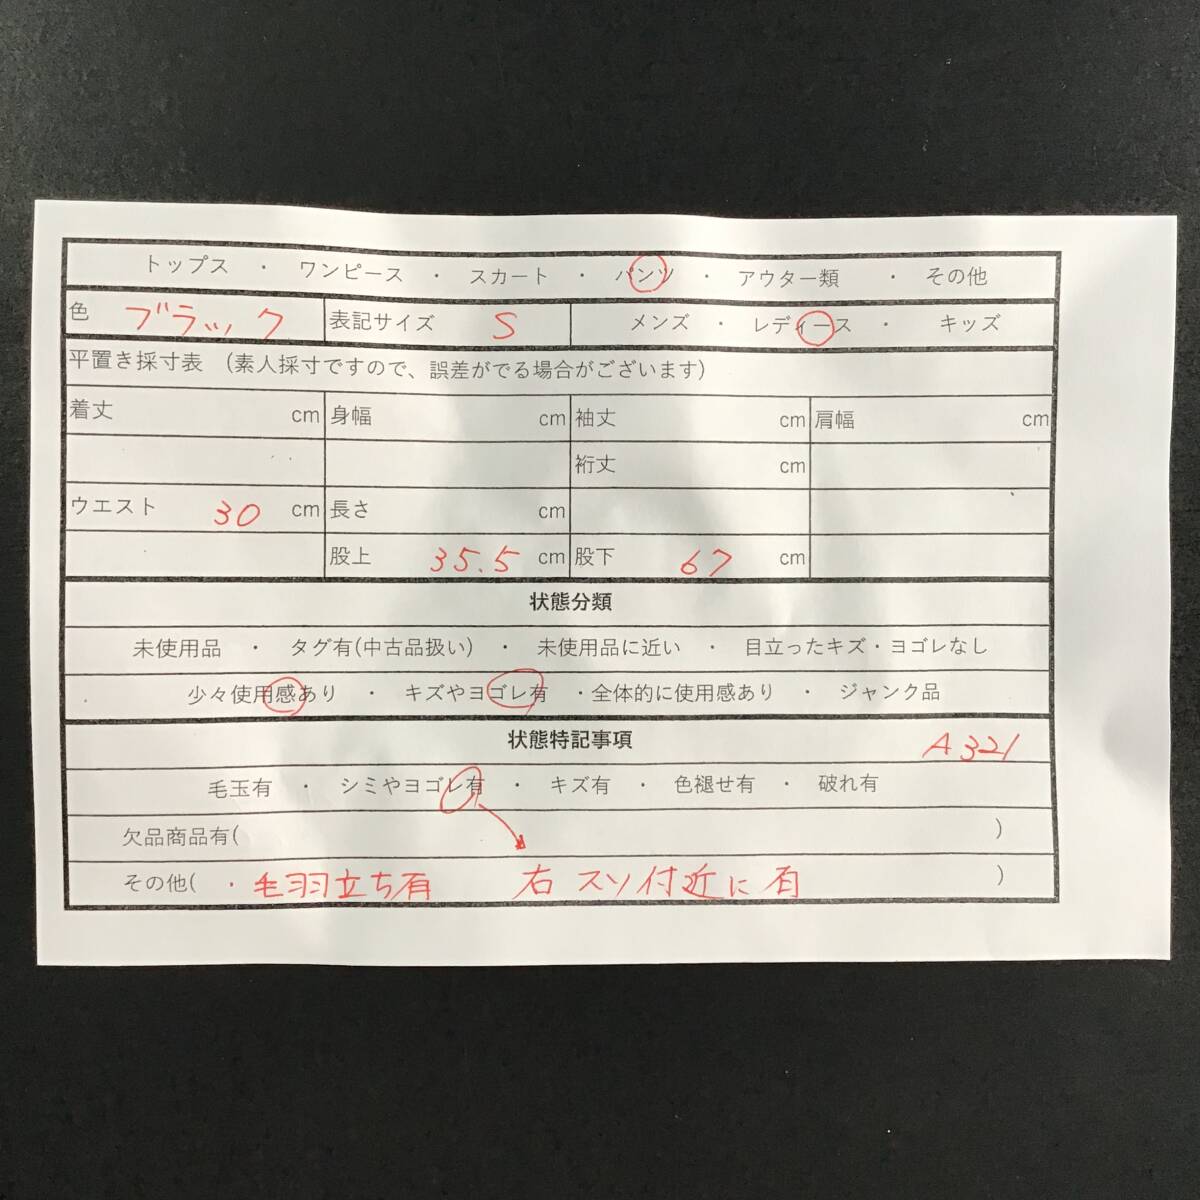 トップス ・ ワンピース ・ スカート ・ パンツ ・ アウター類 ・ その他
色 ブラック 表記サイズ S メンズ ・ レディース ・ キッズ
平置き採寸表 (素人採寸ですので、誤差がでる場合がございます)
着丈 cm 身幅 cm 袖丈 cm 肩幅 cm
裄丈 cm
ウエスト 30 cm 長さ cm
股上 35.5 cm 股下 67 cm
状態分類
未使用品 ・ タグ有(中古品扱い) ・ 未使用品に近い ・ 目立ったキズ・ヨゴレなし
少々使用感あり ・ キズやヨゴレ有 ・全体的に使用感あり ・ ジャンク品
状態特記事項 A321
毛玉有 ・ シミやヨゴレ有 ・ キズ有 ・ 色褪せ有 ・ 破れ有
欠品商品有( )
その他( ・毛羽立ち有 右スソ付近に有 )